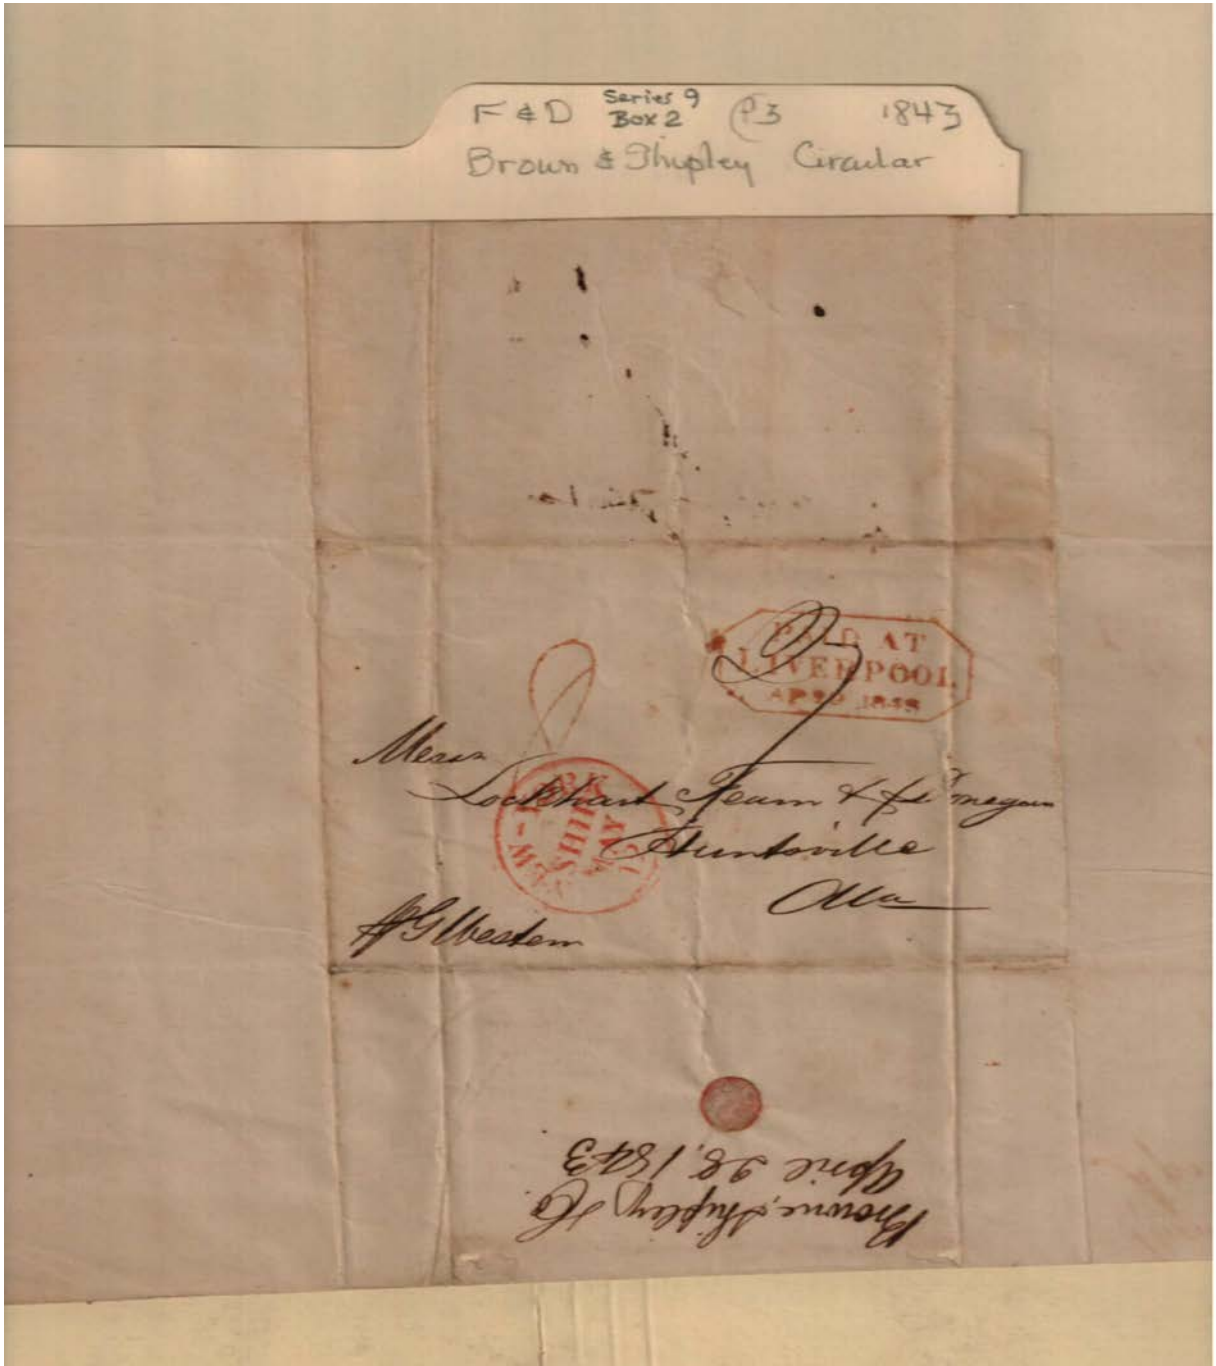 F & D Series 9 Box 2 P3 1843
Brown & Shipley Circular
PAID AT
LIVERPOOL
AP 1843
Messrs
Lockhart Fearn & Donegan
Huntsville
Ala
NEW-YORK
SHIP
MAY
G Western
Browne, Shipley & Co.
April 28, 1843